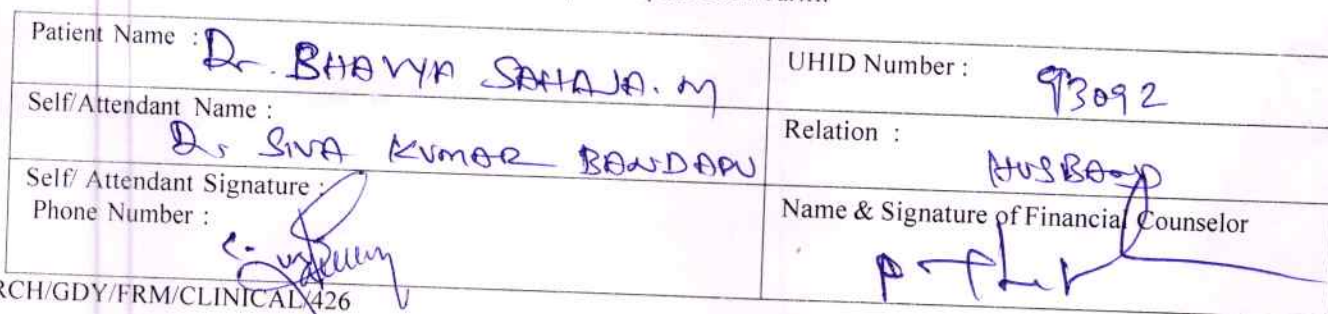 Patient Name : Dr. BHAVYA SAHAJA. M
UHID Number : 93092
Self/Attendant Name :
Dr SIVA KUMAR BANDARU
Relation :
HUSBAND
Self/ Attendant Signature :
Phone Number :
Name & Signature of Financial Counselor
RCH/GDY/FRM/CLINICAL/426